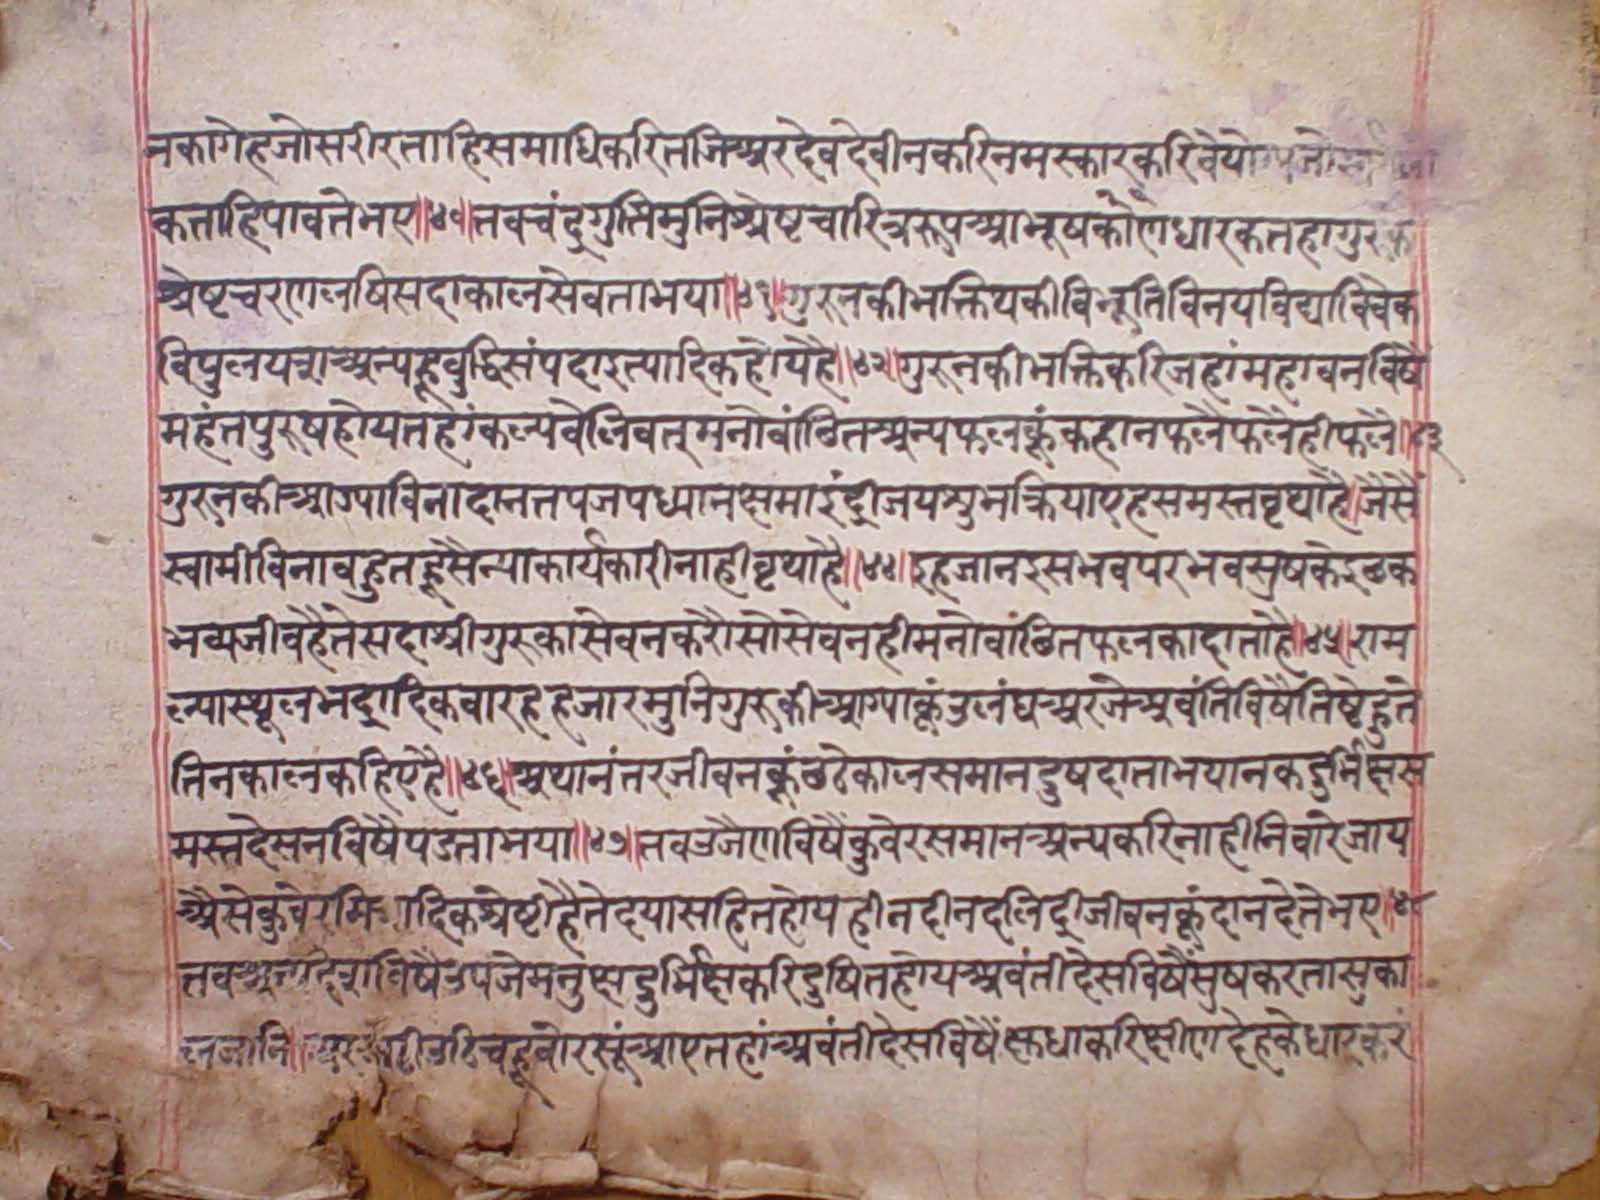 नकागेहजोसरीरताहिसमाधिकरितजिअरदेवदेवीनकरिनमस्कारकरिवेयो
कताहिपावतेभए॥४०॥तवचंद्रगुप्तिमुनिश्रेष्टचारित्ररूपआभूषकौणधारकतहागुरुके
श्रेष्टचरणलषिसदाकालसेवताभया॥४१॥गुरुनकीभक्तियकीविभूतिविनयविद्याविवेक
विपुलयशअन्यहूवुद्धिसंपदाइत्यादिकहोयहै॥४२॥गुरुनकीभक्तिकरिजहांमहावनविषै
महंतपुरुषहोयतहांकल्पवेलिवतूमनोवांछितअन्यफलकूंकहानफलैफलैहीफलै॥४३
गुरुनकीआग्याविनादानतपजपध्यानक्षमाइंद्रीजयशुभक्रियाएहसमस्तवृथाहै।जैसैं
स्वामीविनावहुतहूसैन्याकार्यकारीनाहीवृथाहै॥४४॥इहजानइसभवपरभवसुषकेइछक
भव्यजीवहैतेसदाश्रीगुरुकासेवनकरौसोसेवनहीमनोवांछितफलकादाताहै॥४५॥राम
ल्यास्थूलभद्रादिकवारहहजारमुनिगुरुकीआग्याकूंउलंघअरजेअवंतिविषैतिष्टेहुते
तिनकालकहिएहै॥४६॥अथानंतरजीवनकूंछठेकालसमानदुषदाताभयानकदुर्भिक्षस
मस्तदेसनविषैपडताभया॥४७॥तवउजैणविषैंकुवेरसमानअन्यकरिनाहीनिवारेजाय
अैसेकुवेरमित्रादिकश्रेष्टीहैतेदयासहितहोयहीनदीनदलिद्रीजीवनकूंदानदेतेभए॥४८
तवअन्यदेशविषैंउपजेमनुक्षदुर्भिक्षकरिदुषितहोयअवंतीदेसविषैंसुषकरतासुका
लजानि चहूंवोरसूंआएतहांअवंतीदेसविषैंक्षुधाकरिक्षीणदेहकेधारकरं